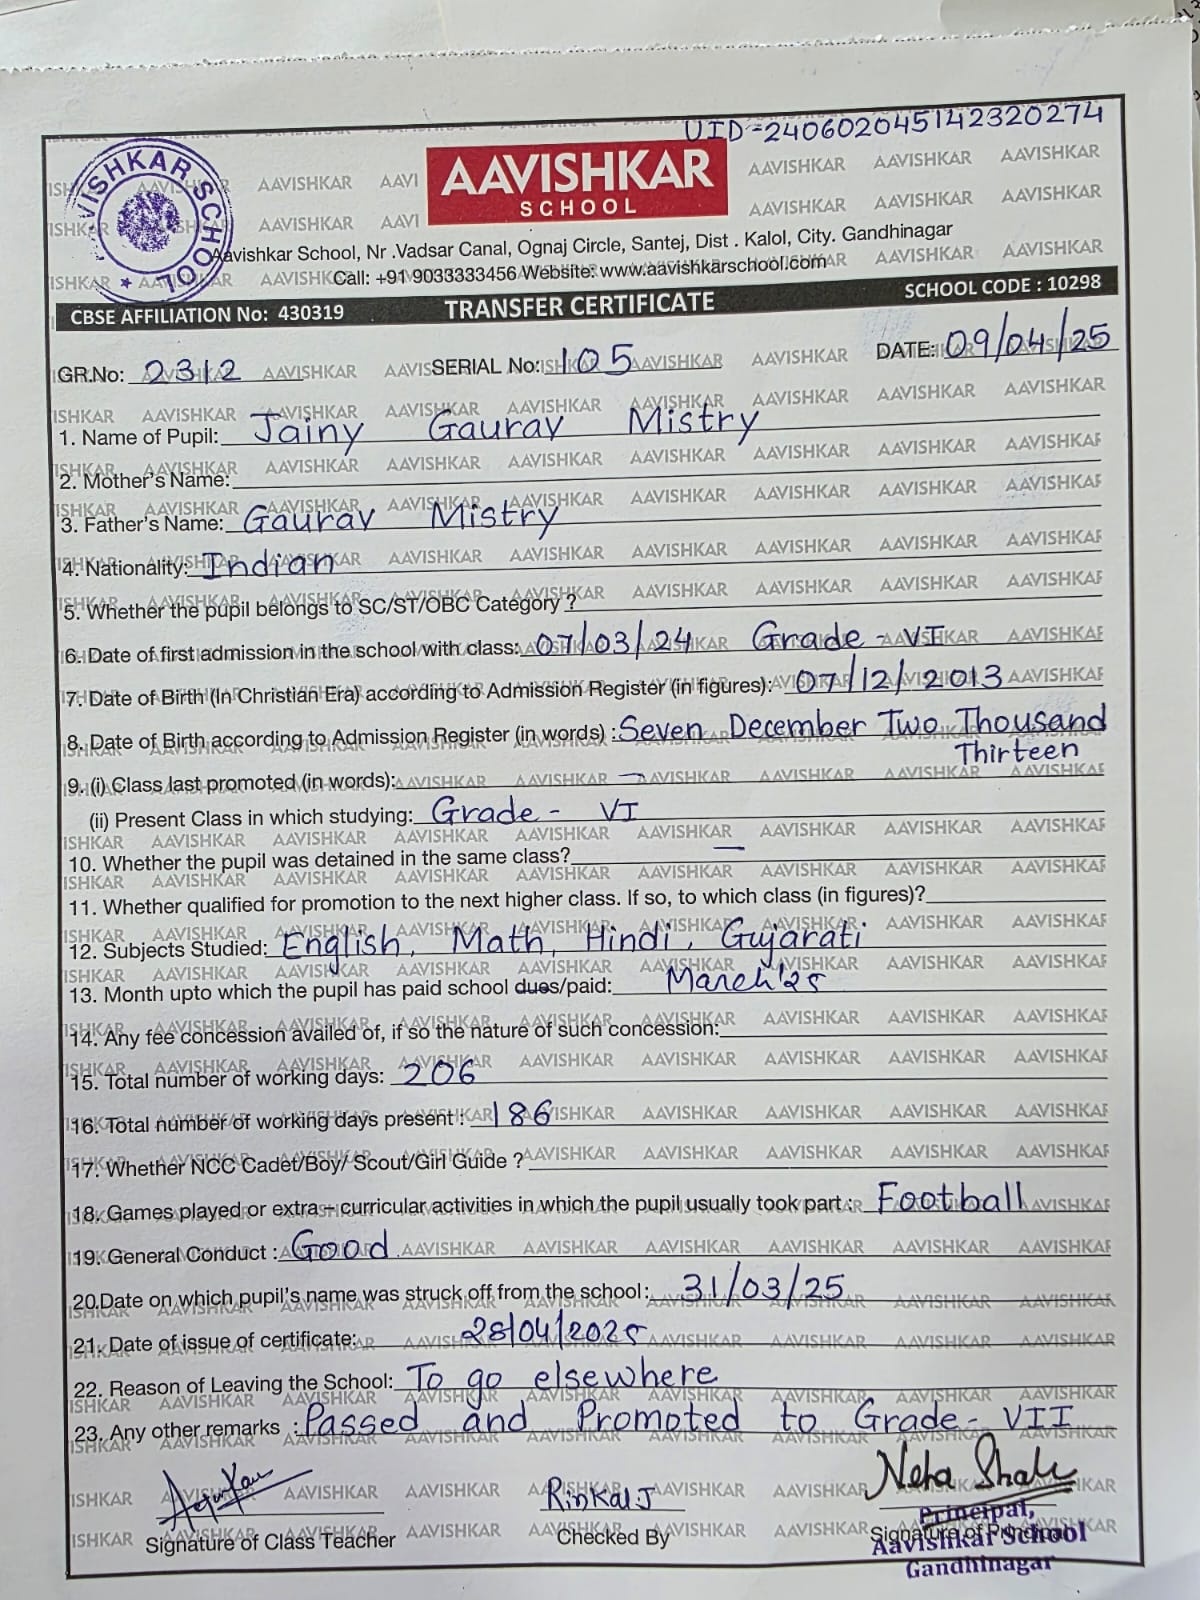 UID = 240602045142320274
AAVISHKAR
SCHOOL
AAVISHKAR SCHOOL
Aavishkar School, Nr .Vadsar Canal, Ognaj Circle, Santej, Dist . Kalol, City. Gandhinagar
Call: +91 9033333456 Website: www.aavishkarschool.com
CBSE AFFILIATION No: 430319 TRANSFER CERTIFICATE SCHOOL CODE : 10298
GR.No: 2312 SERIAL No: 105 DATE: 09/04/25
1. Name of Pupil: Jainy Gaurav Mistry
2. Mother's Name:
3. Father's Name: Gaurav Mistry
4. Nationality: Indian
5. Whether the pupil belongs to SC/ST/OBC Category ?
6. Date of first admission in the school with class: 07/03/24 Grade - VI
7. Date of Birth (In Christian Era) according to Admission Register (in figures): 07/12/2013
8. Date of Birth according to Admission Register (in words) : Seven December Two Thousand
Thirteen
9. (i) Class last promoted (in words): —
(ii) Present Class in which studying: Grade - VI
10. Whether the pupil was detained in the same class? —
11. Whether qualified for promotion to the next higher class. If so, to which class (in figures)?
12. Subjects Studied: English, Math, Hindi, Gujarati
13. Month upto which the pupil has paid school dues/paid: March'25
14. Any fee concession availed of, if so the nature of such concession:
15. Total number of working days: 206
16. Total number of working days present : 186
17. Whether NCC Cadet/Boy/ Scout/Girl Guide ?
18. Games played or extra – curricular activities in which the pupil usually took part : Football
19. General Conduct : Good
20.Date on which pupil's name was struck off from the school: 31/03/25
21. Date of issue of certificate: 28/04/2025
22. Reason of Leaving the School: To go elsewhere
23. Any other remarks : Passed and Promoted to Grade - VII
Rinkal J Neha Shah
Signature of Class Teacher Checked By Signature of Principal
Principal,
Aavishkar School
Gandhinagar